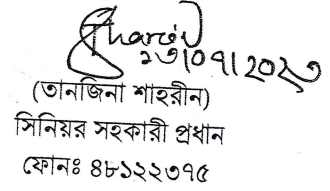 ২৩/০৭/২০২৩
(তানজিনা শাহরীন)
সিনিয়র সহকারী প্রধান
ফোনঃ ৪৮১২২৩৭৫